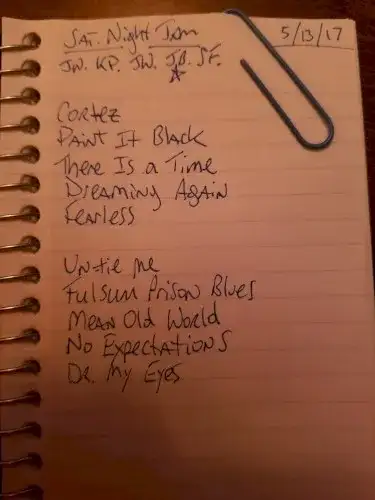 Sat. Night Jam
5/13/17
JW. KP. JW. JB. SF.
Cortez
Paint It Black
There Is a Time
Dreaming Again
Fearless
Untie Me
Fulsum Prison Blues
Mean Old World
No Expectations
Dr. My Eyes